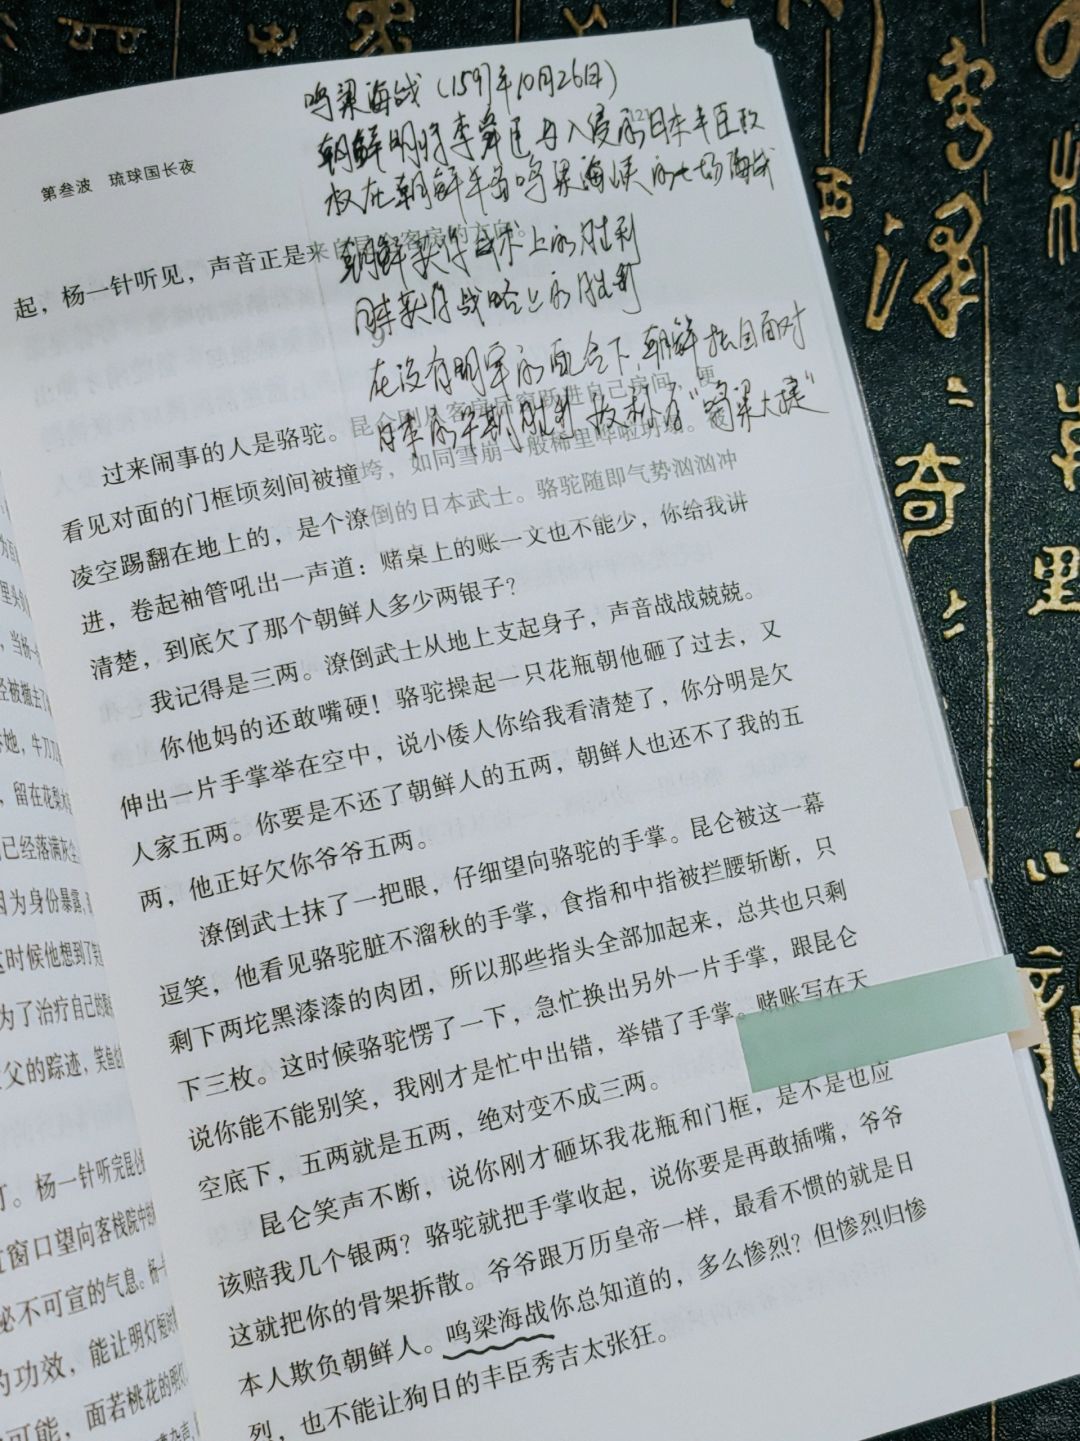 鸣梁海战（1597年10月26日）
朝鲜明将李舜臣与入侵的日本丰臣政
权在朝鲜半岛鸣梁海峡的七场海战
朝鲜获得战术上的胜利
获得战略上的胜利
在没有明军的配合下，朝鲜独自面对
日本的早期胜利，故称为“鸣梁大捷”
第叁波 琉球国长夜
起，杨一针听见，声音正是来自昆仑客房的方向。
过来闹事的人是骆驼。昆仑刚从客房后窗跃进自己房间，便
看见对面的门框顷刻间被撞垮，如同雪崩一般稀里哗啦坍塌。被
凌空踢翻在地上的，是个潦倒的日本武士。骆驼随即气势汹汹冲
进，卷起袖管吼出一声道：赌桌上的账一文也不能少，你给我讲
清楚，到底欠了那个朝鲜人多少两银子？
我记得是三两。潦倒武士从地上支起身子，声音战战兢兢。
你他妈的还敢嘴硬！骆驼操起一只花瓶朝他砸了过去，又
伸出一片手掌举在空中，说小倭人你给我看清楚了，你分明是欠
人家五两。你要是不还了朝鲜人的五两，朝鲜人也还不了我的五
两，他正好欠你爷爷五两。
潦倒武士抹了一把眼，仔细望向骆驼的手掌。昆仑被这一幕
逗笑，他看见骆驼脏不溜秋的手掌，食指和中指被拦腰斩断，只
剩下两坨黑漆漆的肉团，所以那些指头全部加起来，总共也只剩
下三枚。这时候骆驼愣了一下，急忙换出另外一片手掌，跟昆仑
说你能不能别笑，我刚才是忙中出错，举错了手掌。赌账写在天
空底下，五两就是五两，绝对变不成三两。
昆仑笑声不断，说你刚才砸坏我花瓶和门框，是不是也应
该赔我几个银两？骆驼就把手掌收起，说你要是再敢插嘴，爷爷
这就把你的骨架拆散。爷爷跟万历皇帝一样，最看不惯的就是日
本人欺负朝鲜人。鸣梁海战你总知道的，多么惨烈？但惨烈归惨
烈，也不能让狗日的丰臣秀吉太张狂。
，当杨一
，留在花梨
己经落满灰
因为身份暴露，
这时候他想到了笑
为了治疗自己的
父的踪迹，笑鱼
丁。杨一针听完昆仑
窗口望向客栈院中
秘不可宣的气息。杨一
的功效，能让明灯短
可能，面若桃花的明灯
奇
野